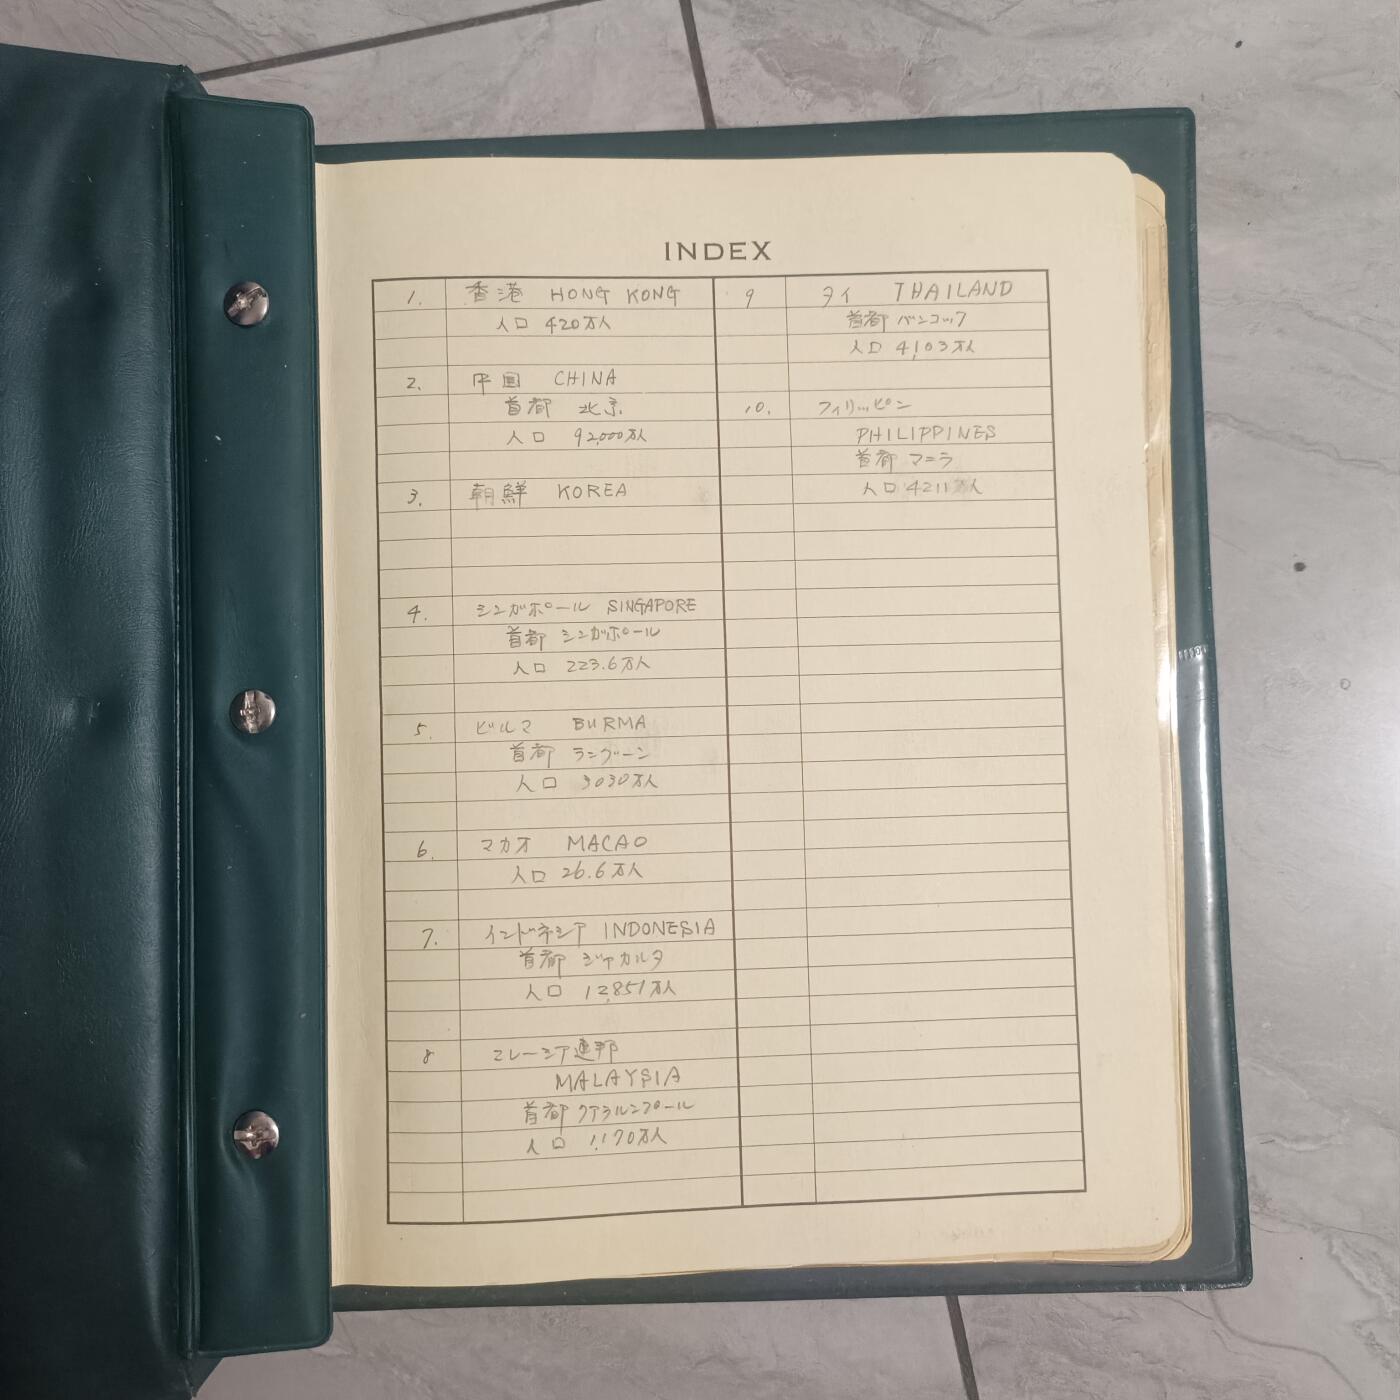 INDEX
1. 香港 HONG KONG
人口 420万人
2. 中国 CHINA
首都 北京
人口 92,000万人
3. 朝鮮 KOREA
4. シンガポール SINGAPORE
首都 シンガポール
人口 223.6万人
5. ビルマ BURMA
首都 ラングーン
人口 3030万人
6. マカオ MACAO
人口 26.6万人
7. インドネシア INDONESIA
首都 ジャカルタ
人口 12,851万人
8 マレーシア連邦
MALAYSIA
首都 クアラルンプール
人口 1,170万人
9 タイ THAILAND
首都 バンコック
人口 4,103万人
10. フィリッピン
PHILIPPINES
首都 マニラ
人口 4211万人